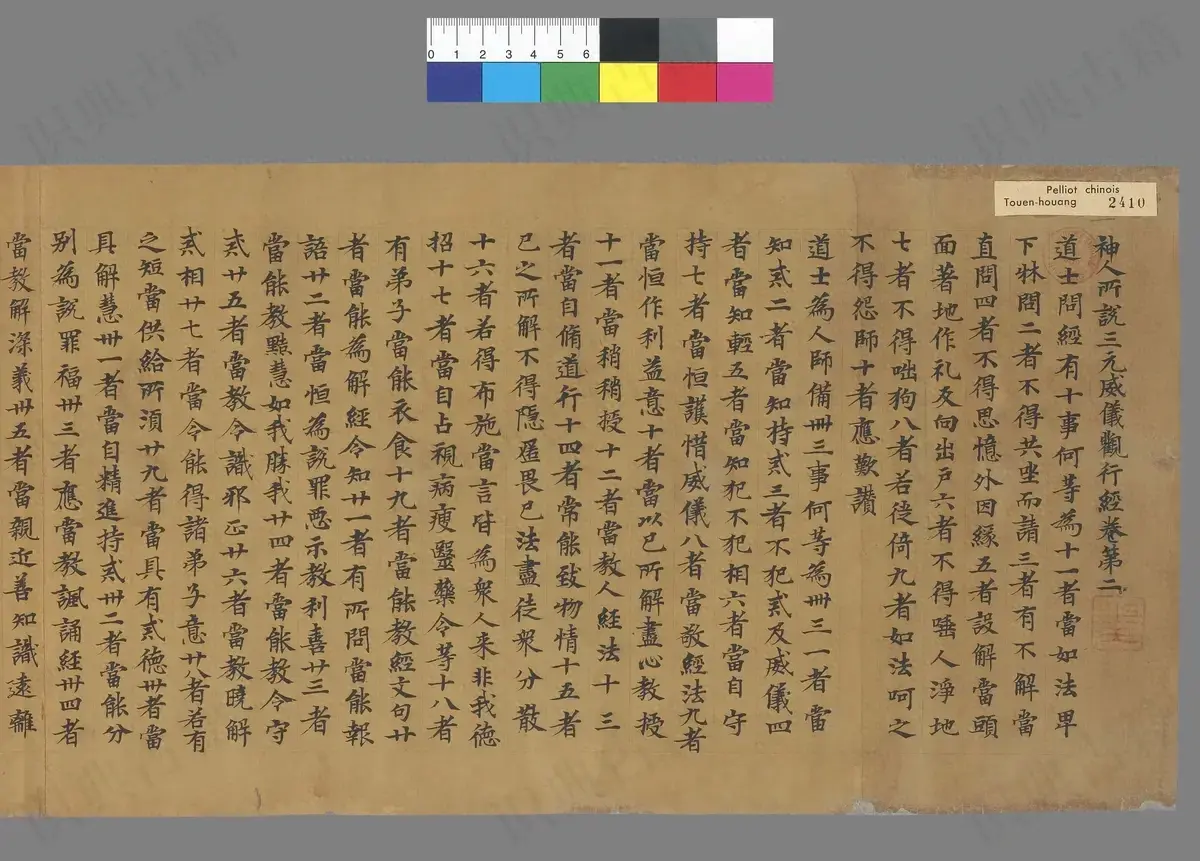 Pelliot chinois
Touen-houang 2410
0 1 2 3 4 5 6
神人所說三元威儀觀行經卷第二
道士問經有十事何等為十一者當如法卑
下牀問二者不得共坐而請三者有不解當
直問四者不得思憶外因緣五者設解當頭
面著地作礼及向出戶六者不得唾人淨地
七者不得咄狗八者若徙倚九者如法呵之
不得怨師十者應歎讚
道士為人師備卅三事何等為卅三一者當
知貳二者當知持貳三者不犯貳及威儀四
者當知輕五者當知犯不犯相六者當自守
持七者當恒護惜威儀八者當敬經法九者
當恒作利益意十者當以已所解盡心教授
十一者當稍稍授十二者當教人經法十三
者當自脩道行十四者常能致物情十五者
已之所解不得隱遲畏已法盡徒衆分散
十六者若得布施當言皆為衆人来非我德
招十七者當自占視病瘦毉藥令等十八者
有弟子當能衣食十九者當能教經文句廿
者當能為解經令知廿一者有所問當能報
語廿二者當恒為說罪惡示教利喜廿三者
當能教黠慧如我勝我廿四者當能教令守
貳廿五者當教令識邪正廿六者當教曉解
貳相廿七者當令能得諸弟子意廿八者若有
之短當供給所須廿九者當具有貳德卅者當
具解慧卅一者當自精進持貳卅二者當能分
別為說罪福卅三者應當教諷誦經卅四者
當教解深義卅五者當親近善知識遠離
識典古籍